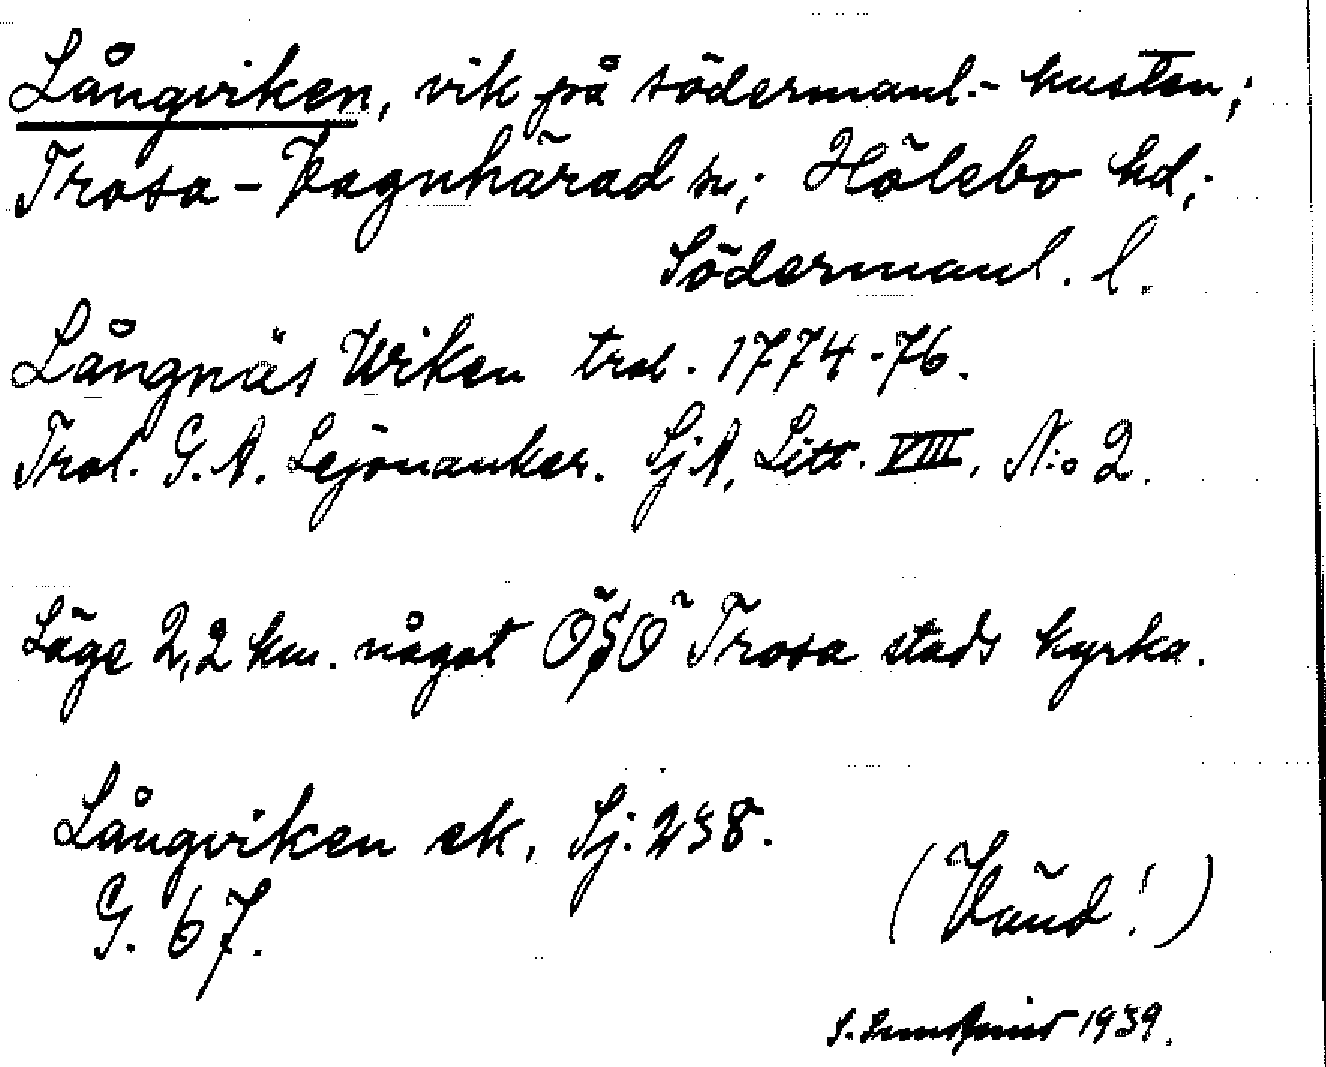 Långviken, vik på södermanl.-kusten;
Trosa-Vagnhärad sn; Hölebo hd;
Södermanl. l.
Långnäs Wiken trol. 1774-76.
Trol. G. A. Lejonanker. SjA, Litt. VIII, N:o 2.
Läge 2,2 km. något ÖSÖ Trosa stads kyrka.
Långviken ek. Sj. 238.
G. 67.
(Vänd!)
S. 1939.